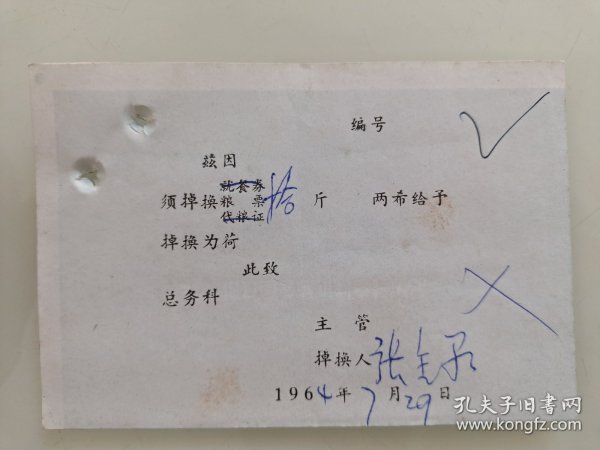 编号
兹因
就餐券
须掉换粮票拾斤 两希给予
代粮证
掉换为荷
此致
总务科
主管
掉换人 张
1964年7月29日
孔夫子旧书网
www.kongfz.com